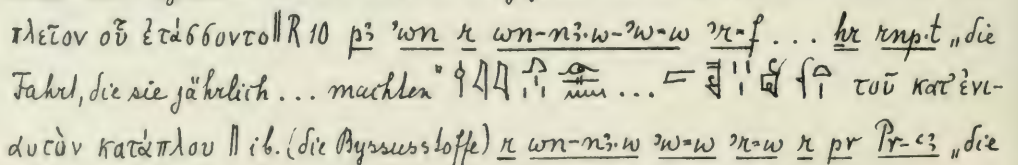 πλεῖον οὗ ἐτάσσοντο || R 10 pꜣ ꜥwn r wn-nꜣ.w-ꜣw=w ꜣr=f ... hr rnp.t „die
Fahrt, die sie jährlich ... machten“ ... τοῦ κατ' ἐνι-
αυτὸν κατάπλου || ib. (die Byssusstoffe) r wn-nꜣ.w ꜣw=w ꜣr=w r pr Pr-ꜥꜣ „die